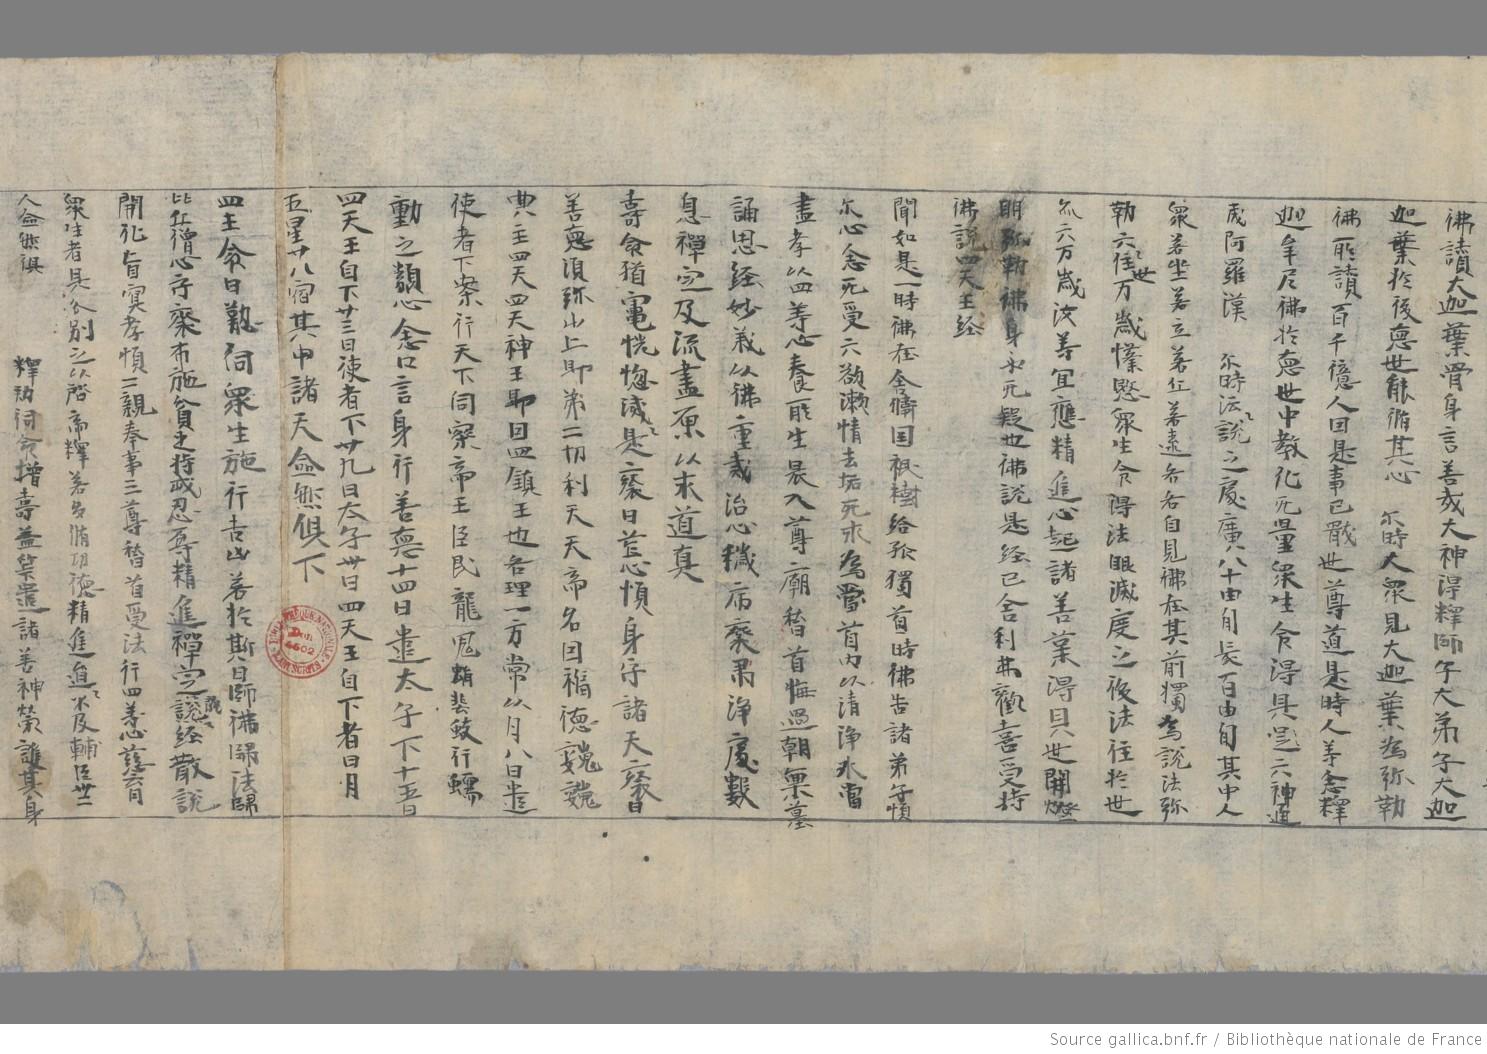 佛讚大迦葉骨身言善哉大神淂釋師子大弟子大迦
迦葉扵後惡世能脩其心 尒時人衆見大迦葉為弥勒
佛所讃百千億人因是事已猒世尊道是時人等念釋
迦牟尼佛扵惡世中教化无量衆生令淂具足六神通
成阿羅漢 尒時法說之處廣八十由旬長百由旬其中人
衆若坐若立若仁若遠各各自見佛在其前獨為說法弥
勒六住万世歲憐愍衆生令得法眼滅度之後法住扵世
尒六万歲汝等宜應精進心起諸善業淂具世間燈
明弥勒佛身永无疑也佛說是經已舍利弗歡喜受持
佛說四天王経
聞如是一時佛在舍衛囯祇樹給孤獨首時佛告諸弟子慎
尒心念无受六欲潄情去垢无求為 首内以清浄水當
盡孝以四等心養所生晨入尊廟稽首悔過朝 墓
誦思経妙義以佛重戒治心穢病 浄處數
息禪定及流盡原以末道真
壽命猶電恍惚滅是齋日 心慎身守諸天齋日
善惡湏弥山上即第二切利天天帝名因福德巍巍
典主四天四天神王即因四鎮王也各理一方常以月八日遣
使者下案行天下伺察帝王臣民龍鬼蜎蜚蚑行蠕
動之類心念口言身行善惡十四日遣太子下十五日
四天王自下廿三日使者下廿九日太子卅日四天王自下者日月
五星廿八宿其中諸天僉然俱下
四王命曰懃伺衆生施行吉凶若扵斯日歸佛歸法歸
比丘僧心守齋布施貧乏持戒忍辱精進禪定說経散說
開化盲冥孝慎二親奉事三尊稽首受法行四等心慈育
衆生者是各別之以啓帝釋若多脩功德精進 不及輔臣卅二
人僉然俱 釋勑伺命増壽益筭遣諸善神榮護其身
BIBLIOTHÈQUE NATIONALE
MANUSCRITS
Source gallica.bnf.fr / Bibliothèque nationale de France